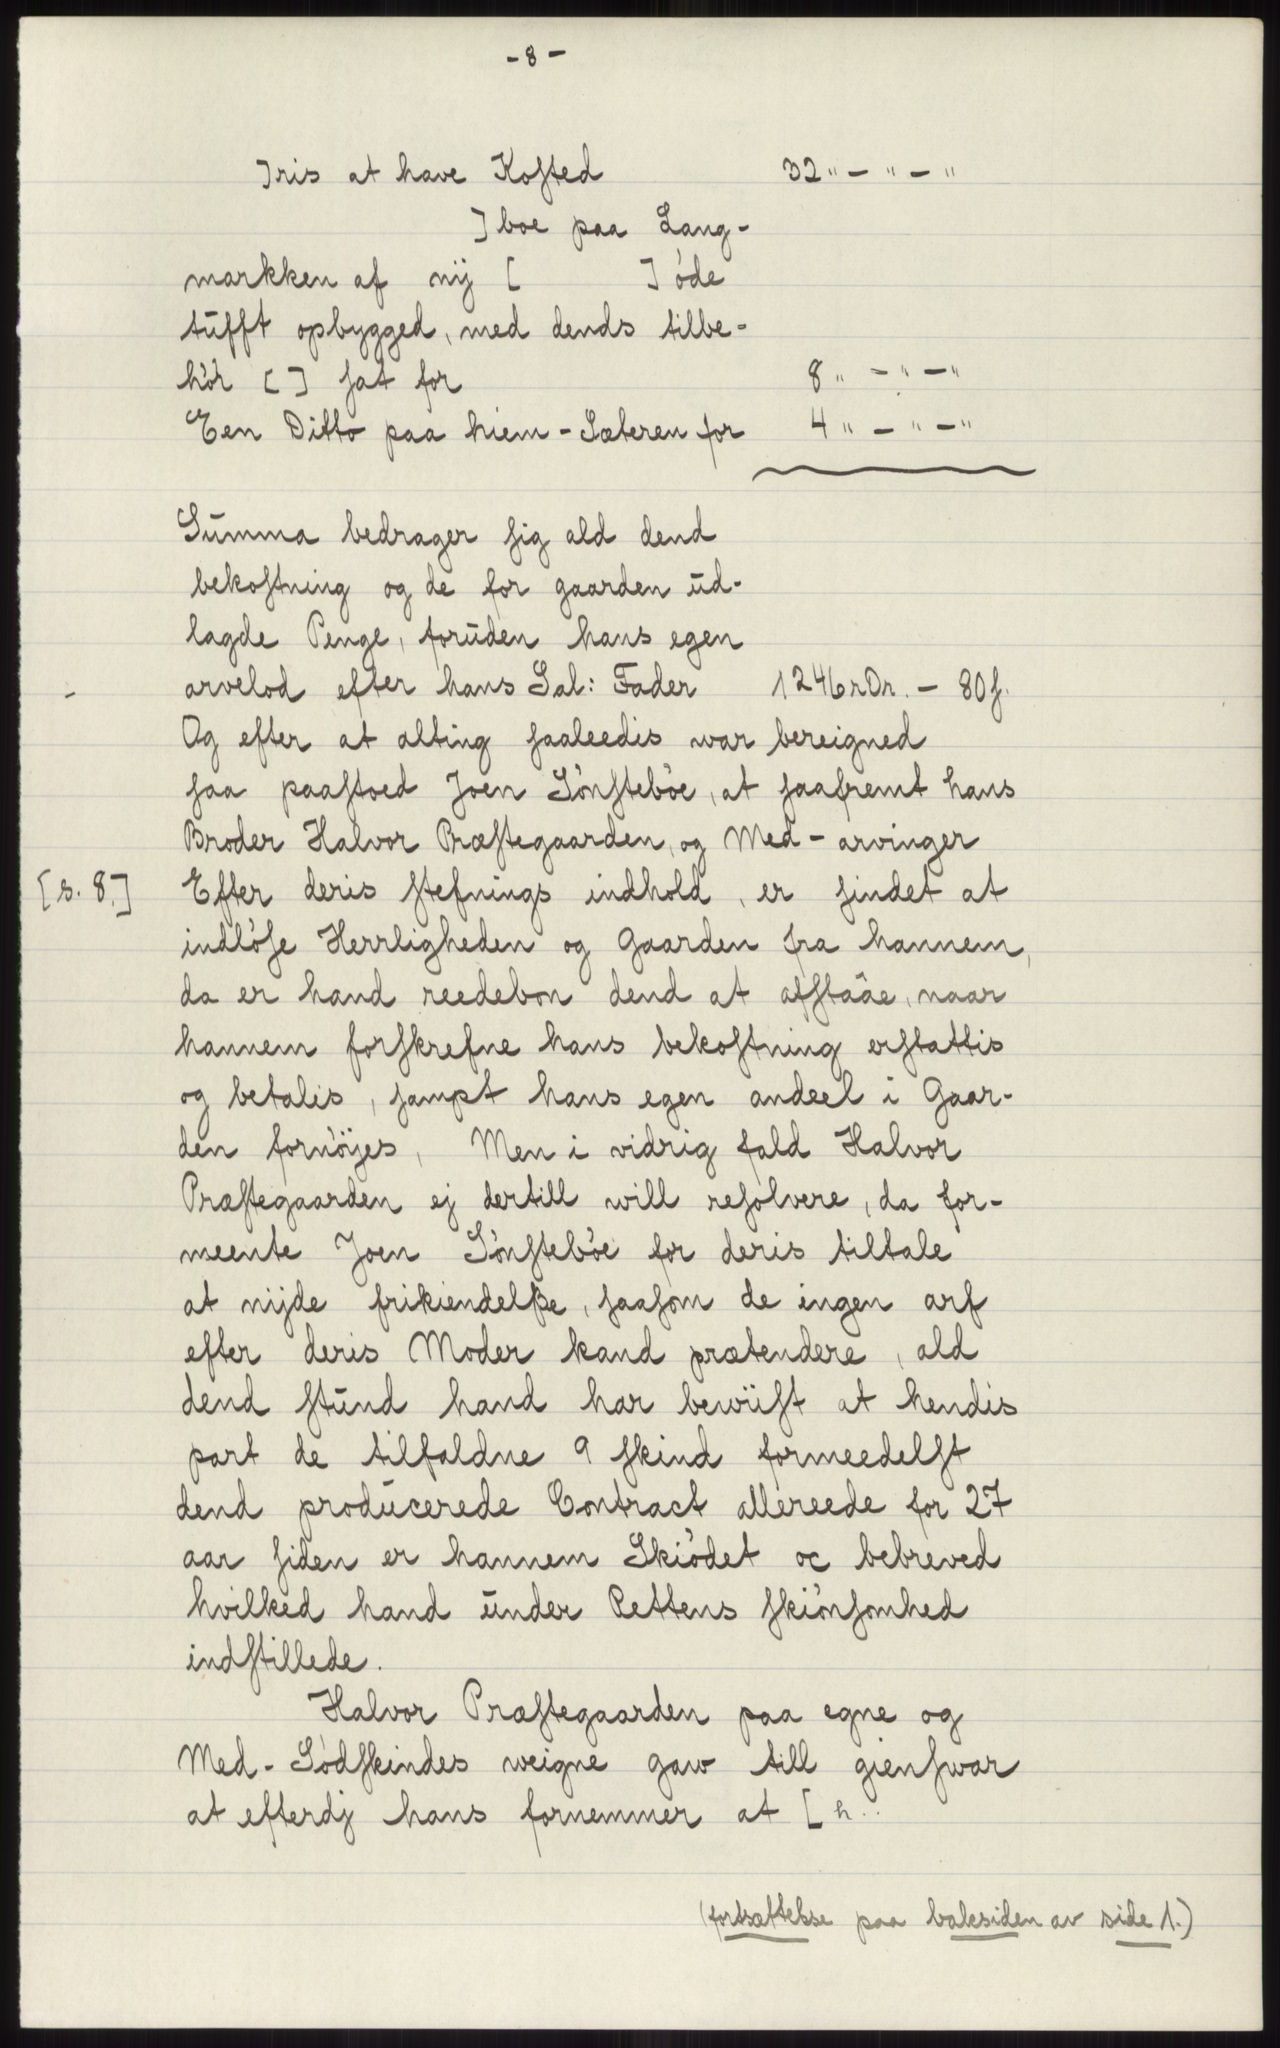 - 8 -
]ris at have Kosted 32 " - " - "
] boe paa Lang-
markken af nij [ ] öde
tufft opbygged, med dends tilbe-
hör [ ] sat for 8 " - " - "
Een Ditto paa hiem-Sæteren for 4 " - " - "
Summa bedrager sig ald dend
bekostning og de for gaarden ud-
lagde Penge, foruden hans egen
- arvelod efter hans Sal: Fader 1246 rDr. - 80 s.
Og efter at alting saaleedis war bereigned
saa paastoed Joen Sönsteböe, at saafremt hans
Broder Halvor Præstegaarden, og Med-arvinger
[s. 8.] Efter deris stefnings indhold, er sindet at
indlöse Herrligheden og Gaarden fra hannem,
da er hand reedebon dend at afstaae, naar
hannem forskrefne hans bekostning erstattis
og betalis, sampt hans egen andeel i Gaar-
den fornöjes, Men i vidrig fald Halvor
Præstegaarden ej dertill will resolvere, da for-
meente Joen Sönsteböe for deris tiltale
at nijde frikiendelße, saasom de ingen arf
efter deris Moder kand prætendere, ald
dend stund hand har bewiist at hendis
part de tilfaldne 9 skind formeedelst
dend producerede Contract allereede for 27
aar siden er hannem Skiödet oc bebreved
hvilked hand under Rettens skiönsomhed
indstillede.
Halvor Præstegaarden paa egne og
Med-Södskindes weigne gaw till giensvar
at efterdj hans fornemmer at [ h..
(fortsættelse paa baksiden av side 1.)